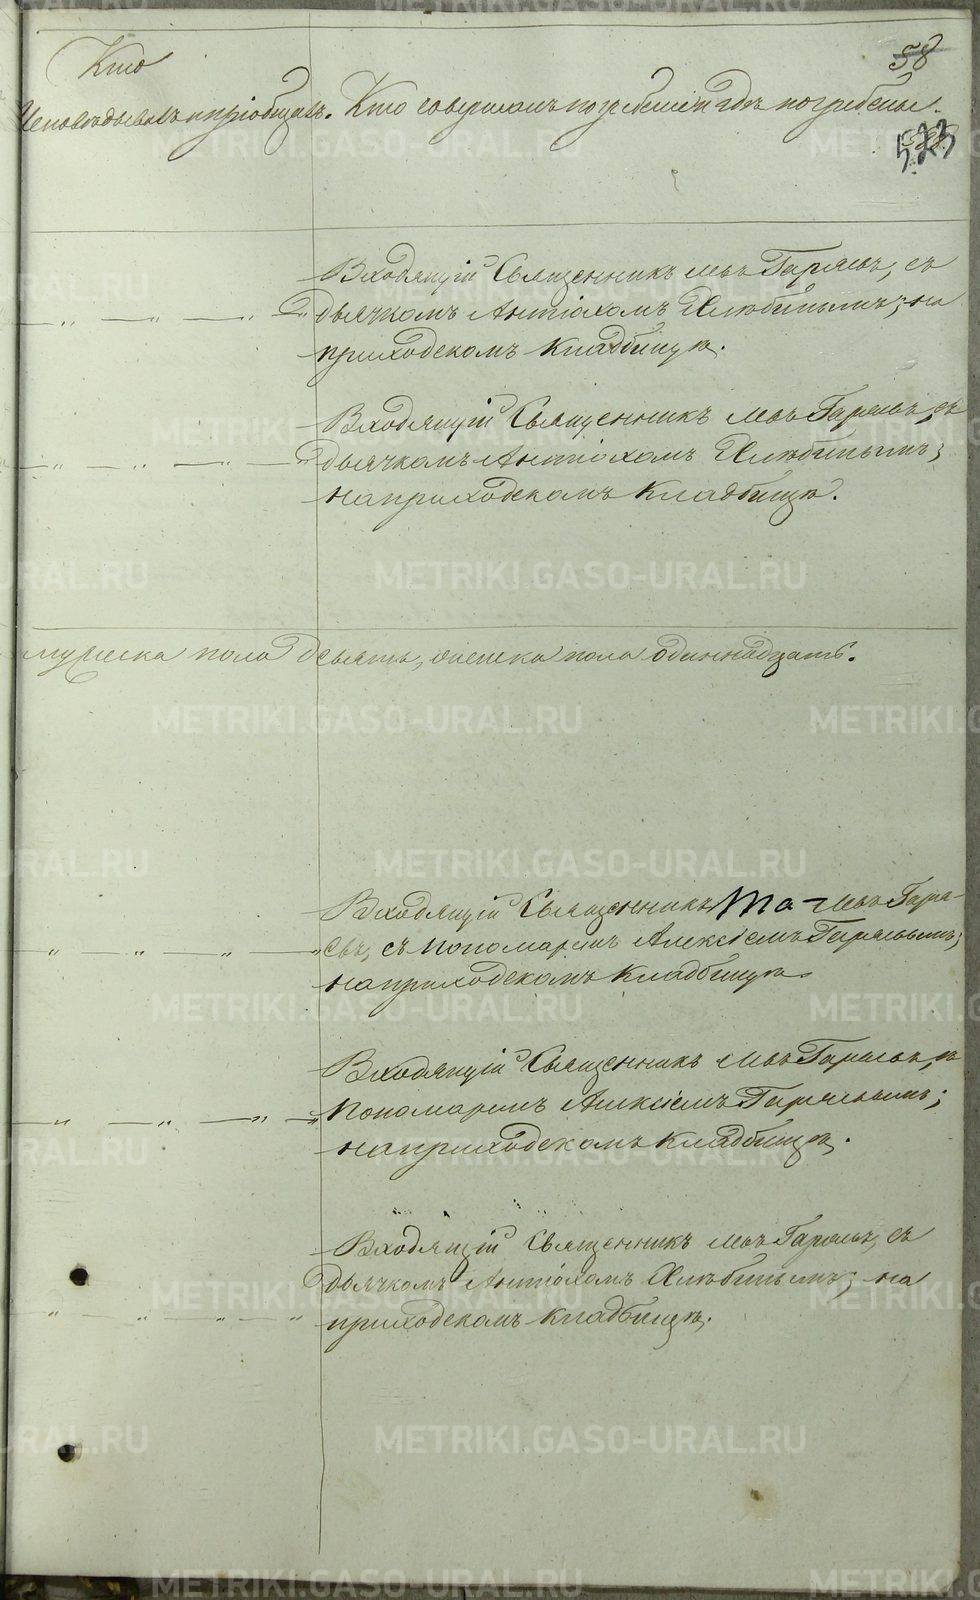 58
Кто
Исповѣдывалъ и пріобщалъ. Кто совершалъ погребеніе и гдѣ погребены.
523
Входящій Священникъ Левъ Гаряевъ, съ
дьячкомъ Антіохомъ Хлюбинымъ; на
приходскомъ кладбищѣ.
Входящій Священникъ Левъ Гаряевъ, съ
дьячкомъ Антіохомъ Хлюбинымъ;
на приходскомъ кладбищѣ.
мужеска пола девять, женска пола одиннадцать.
Входящій Священникъ Левъ Гаря-
евъ, съ пономаремъ Алексіемъ Гаряевымъ;
на приходскомъ кладбищѣ
Входящій Священникъ Левъ Гаряевъ, съ
пономаремъ Алексіемъ Гаряевымъ;
на приходскомъ кладбищѣ.
Входящій Священникъ Левъ Гаряевъ, съ
дьячкомъ Антіохомъ Хлюбинымъ; на
приходскомъ кладбищѣ.
METRIKI.GASO-URAL.RU